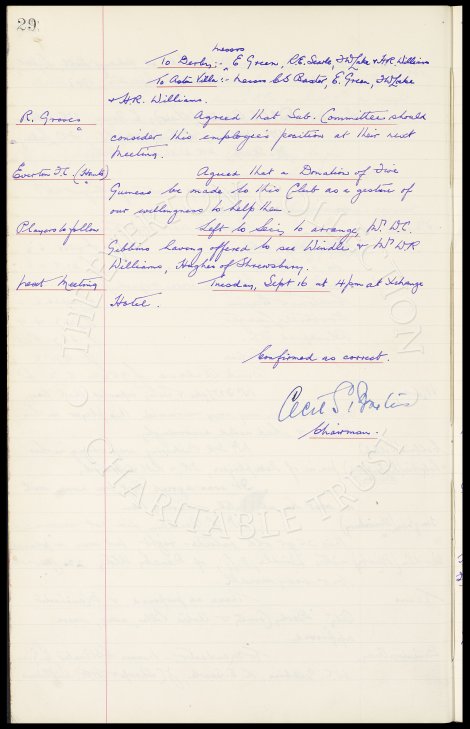 29
Messrs
To Derby:- E Green, R.E. Searle, F W Lake & H.R. Williams
To Aston Villa:- Messrs C S Baxter, E. Green, F W Lake
& H.R. Williams.
R. Groves Agreed that Sub. Committee should
consider this employee's position at their next
Meeting.
Everton F.C. Agreed that a Donation of Five
Guineas be made to this Club as a gesture of
our willingness to help them
Players to follow Left to Secy to arrange, Mr W.C.
Gibbins having offered to see Windle & Mr W R
Williams, Hughes of Shrewsbury.
Next Meeting Tuesday, Sept 16 at 4pm at Xchange
Hotel.
Confirmed as correct.
Cecil S. Baxter
Chairman.
THE COLLECTION
© CHARITABLE TRUST